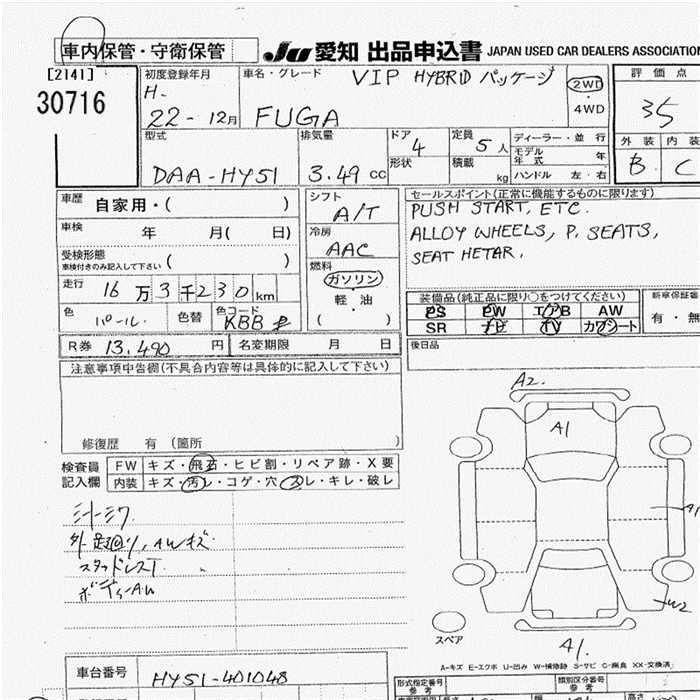 車内保管・守衛保管
JU 愛知 出品申込書 JAPAN USED CAR DEALERS ASSOCIATION
[2141]
30716
初度登録年月
H-
22-12月
車名・グレード VIP HYBRID パッケージ
FUGA
2WD
4WD
評価点
35
型式
DAA-HY51
排気量
3.49 cc
ドア 4
形状
定員 5人
積載 kg
ディーラー・並行
モデル年式 年
ハンドル 左・右
外装 内装
B C
車歴 自家用・( )
車検 年 月( 日)
受検形態
車検付きのみ記入して下さい ( )
走行 16万3千230km
色 パール. 色替 色コード KBB
R券 13,490 円 名変期限 月 日
シフト
A/T
冷房
AAC
燃料
ガソリン
軽・油
( )
セールスポイント(正常に機能するものに限ります)
PUSH START, ETC.
ALLOY WHEELS, P. SEATS,
SEAT HETAR.
装備品(純正品に限り○をつけてください)
PS PW エアB AW
SR ナビ TV カワシート
新車保証書
有・無
後日品
注意事項申告欄(不具合内容等は具体的に記入して下さい)
修復歴 有(箇所 )
検査員記入欄
FW キズ・飛石・ヒビ割・リペア跡・X要
内装 キズ・汚レ・コゲ・穴・スレ・キレ・破レ
外 足廻り, AWキズ
スタッドレスT
ボディーAW
A2.
A1
A1
W2
A1.
スペア
A-キズ E-エクボ U-凹み W-補修跡 S-サビ C-腐食 XX-交換済
車台番号 HY51-401048
形式指定番号
参考
類別区分番号
参考